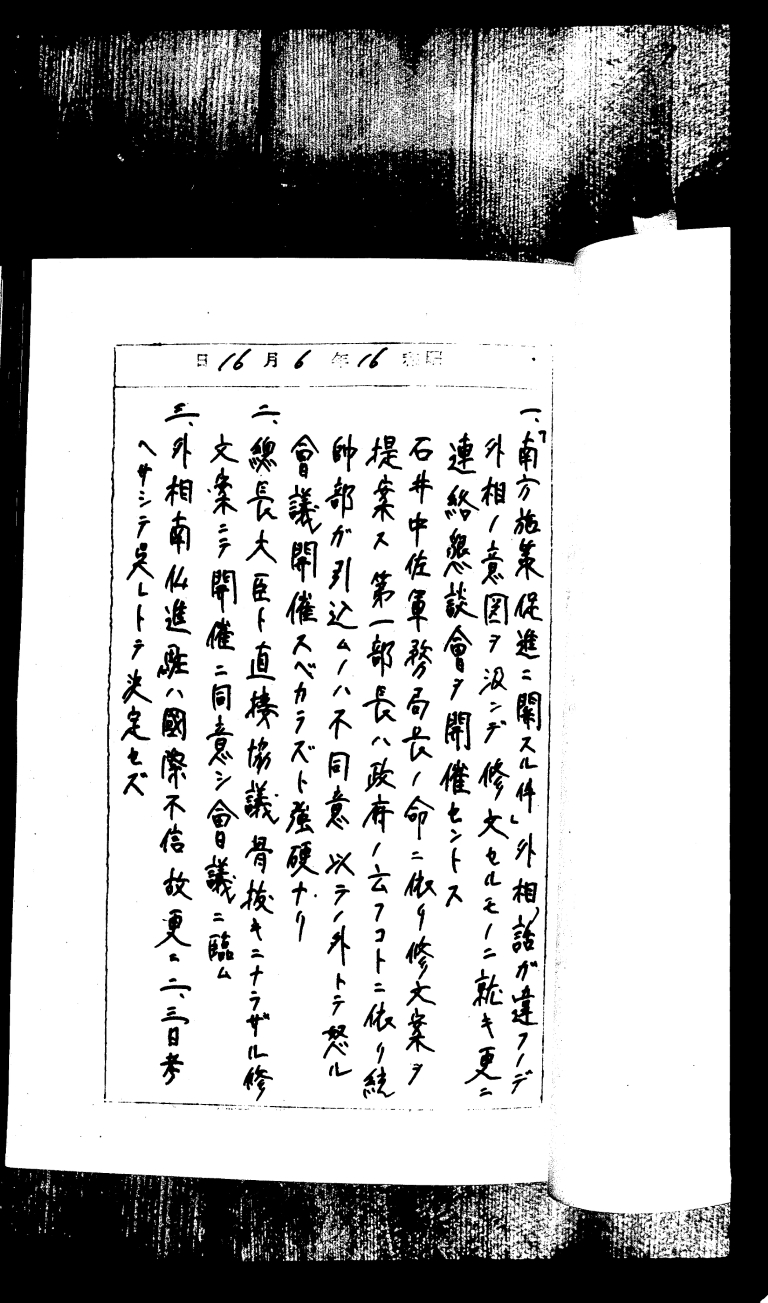 昭和16年6月16日
一、「南方施策促進ニ關スル件」外相話ガ違フノデ
外相ノ意図ヲ汲ンデ修文セルモノニ就キ更ニ
連絡懇談會ヲ開催セントス
石井中佐軍務局長ノ命ニ依リ修文案ヲ
提案ス第一部長ハ政府ノ云フコトニ依リ統
帥部ガ引込ムノハ不同意以テノ外トテ怒ル
會議開催スベカラズト強硬ナリ
二、總長大臣ト直接協議骨抜キニナラザル修
文案ニテ開催ニ同意シ會議ニ臨ム
三、外相南仏進駐ハ國際不信故更ニ二、三日考
ヘサシテ呉レトテ決定セズ